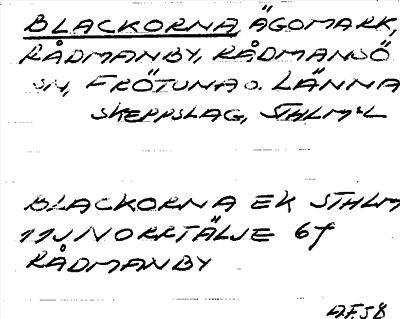 BLACKORNA, ÄGOMARK,
RÅDMANBY, RÅDMANSÖ
SN, FRÖTUNA O. LÄNNA
SKEPPSLAG, STHLMSL
BLACKORNA EK STHLM
11J NORRTÄLJE 6f
RÅDMANBY